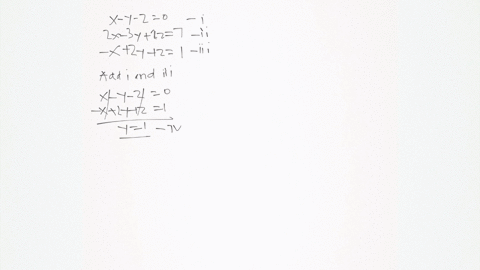 x-y-2=0 -i
2x-3y+2z=7 -ii
-x+2y+2=1 -iii
Add i and iii
x-y-2=0
-x+2y+2=1
y=1 -iv